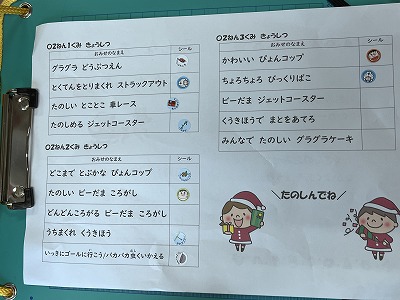 〇2ねん1くみ きょうしつ
おみせのなまえ シール
グラグラ どうぶつえん
とくてんをとりまくれ ストラックアウト
たのしい とことこ 車レース
たのしめる ジェットコースター
〇2ねん2くみ きょうしつ
おみせのなまえ シール
どこまで とぶかな ぴょんコップ
たのしい ビーだま ころがし
どんどんころがる ビーだま ころがし
うちまくれ くうきほう
いっきにゴールに行こう/パカパカ虫くいかえる
〇2ねん3くみ きょうしつ
おみせのなまえ シール
かわいい ぴょんコップ
ちょろちょろ びっくりばこ
ビーだま ジェットコースター
くうきほうで まとをあてろ
みんなで たのしい グラグラケーキ
＼たのしんでね／